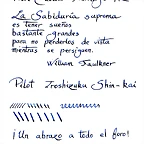 La Sabiduría suprema
es tener sueños
bastante grandes
para no perderlos de vista
mientras se persiguen.
William Faulkner
Pilot Iroshizuku Shin-kai
¡Un abrazo a todo el foro!